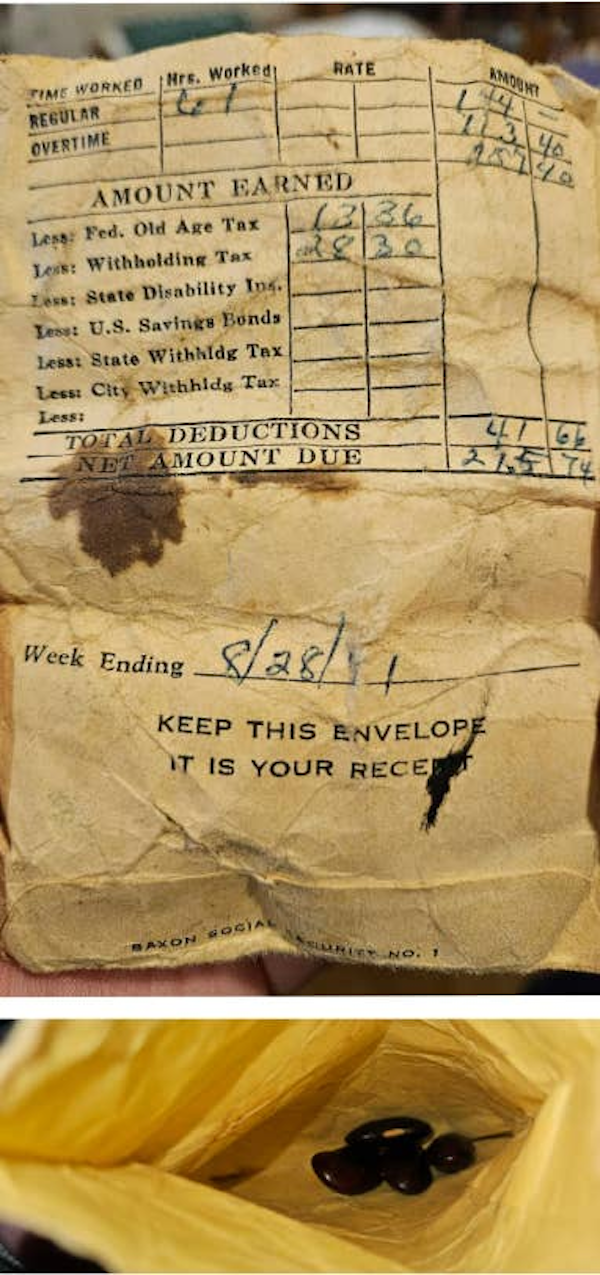 TIME WORKED Hrs. Worked RATE AMOUNT
REGULAR 61 144 -
OVERTIME 113 40
257 40
AMOUNT EARNED
Less: Fed. Old Age Tax 13 36
Less: Withholding Tax 28 30
Less: State Disability Ins.
Less: U.S. Savings Bonds
Less: State Withhldg Tax
Less: City Withhldg Tax
Less:
TOTAL DEDUCTIONS 41 66
NET AMOUNT DUE 215 74
Week Ending 8/28/71
KEEP THIS ENVELOPE
IT IS YOUR RECEIPT
BAXON SOCIAL SECURITY NO. 1